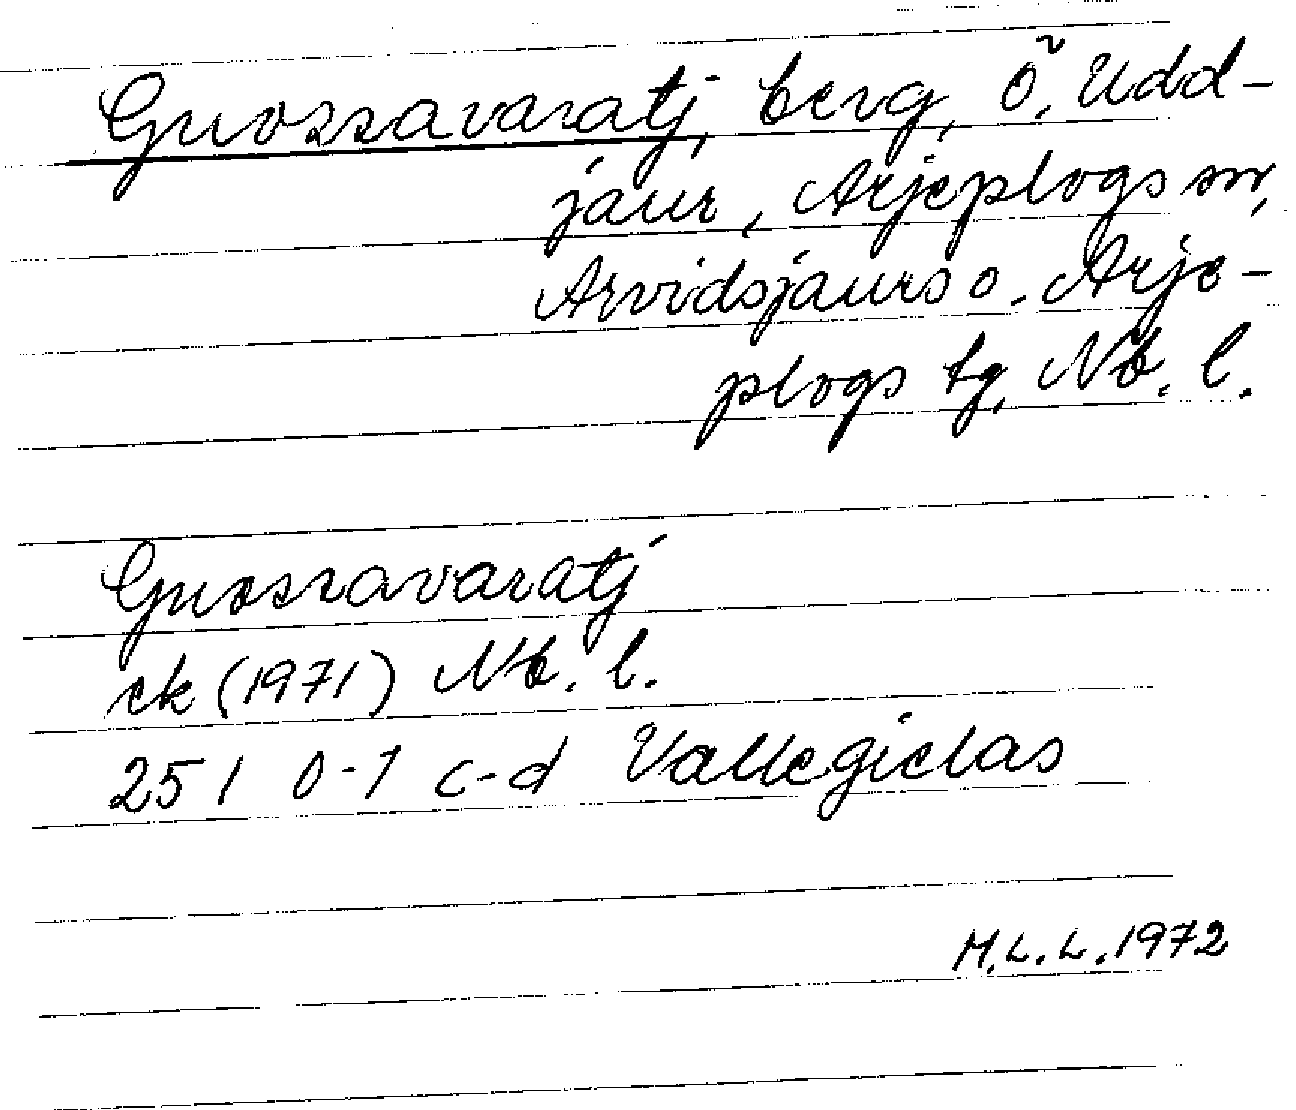 Guossavaratj, berg, Ö. Udd-
jaur, Arjeplogs sn,
Arvidsjaurs o. Arje-
plogs tg, Nb. l.
Guossavaratj
ek (1971) Nb. l.
25 I 0-1 c-d Vallegielas
M.L.L. 1972